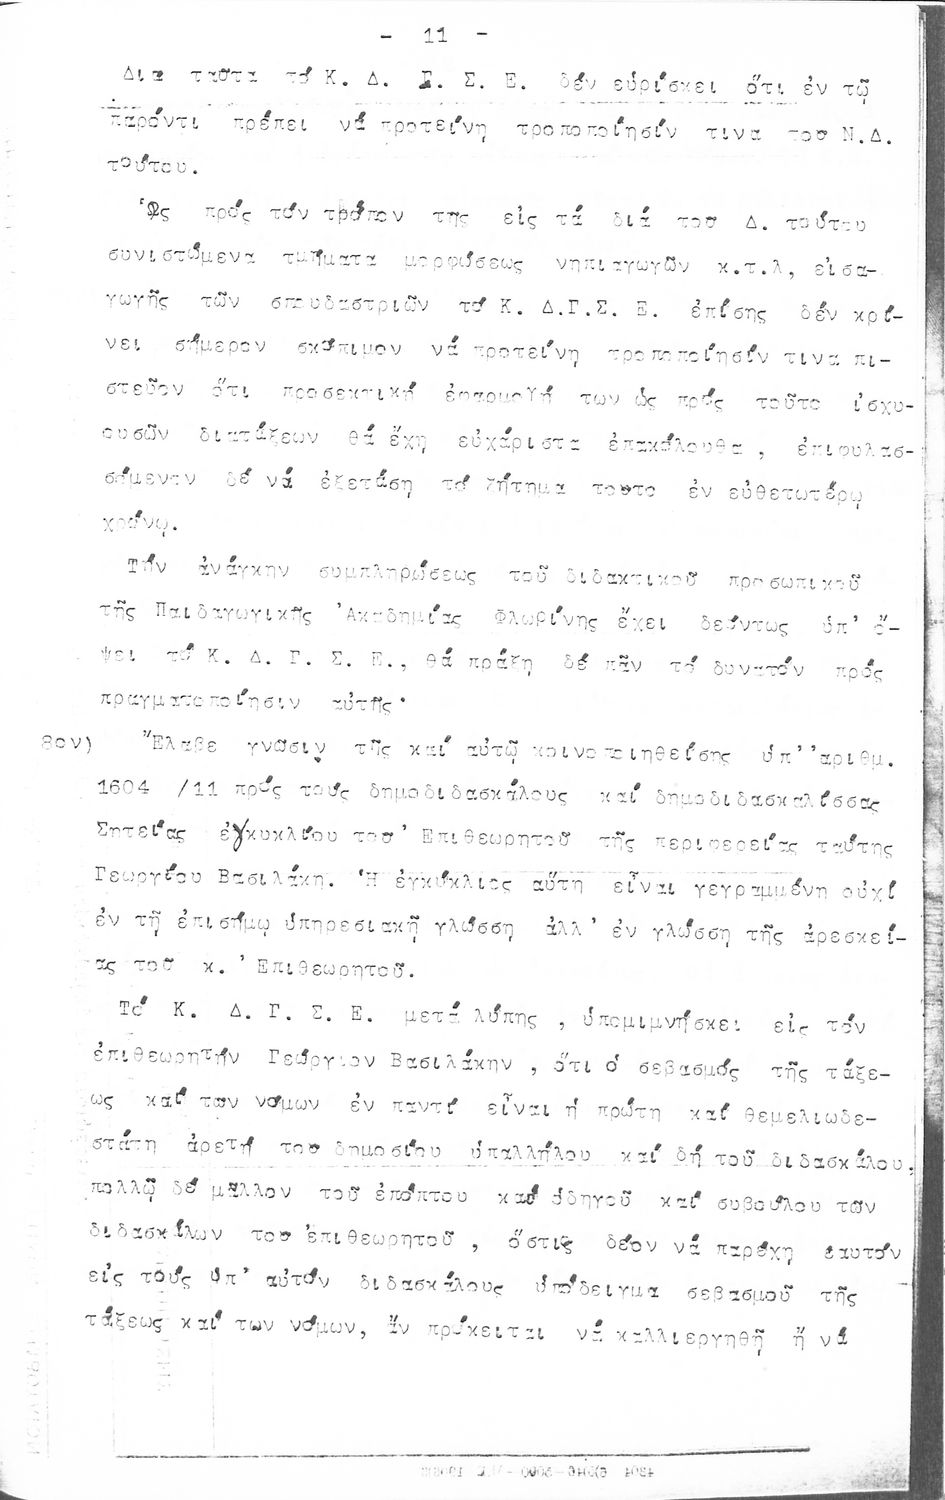 - 11 -
Διά ταῦτα τό Κ. Δ. Γ. Σ. Ε. δέν εὑρίσκει ὅτι ἐν τῷ
παρόντι πρέπει νά προτείνῃ τροποποίησίν τινα του Ν.Δ.
τούτου.
Ὡς πρός τόν τρόπον της εἰς τά διά του Δ. τούτου
συνιστώμενα τμήματα μορφώσεως νηπιαγωγῶν κ.τ.λ, εἰσα-
γωγῆς τῶν σπουδαστριῶν τό Κ. Δ.Γ.Σ. Ε. ἐπίσης δέν κρί-
νει σήμερον σκόπιμον νά προτείνῃ τροποποίησίν τινα πι-
στεῦον ὅτι προσεκτική ἐφαρμογή των ὡς πρός τοῦτο ἰσχυ-
ουσῶν διατάξεων θά ἔχῃ εὐχάριστα ἐπακόλουθα, ἐπιφυλασ-
σόμενον δέ νά ἐξετάσῃ τό ζήτημα τουτο ἐν εὐθετωτέρῳ
χρόνῳ.
Τήν ἀνάγκην συμπληρώσεως τοῦ διδακτικοῦ προσωπικοῦ
τῆς Παιδαγωγικῆς Ἀκαδημίας Φλωρίνης ἔχει δεόντως ὑπ' ὄ-
ψει τό Κ. Δ. Γ. Σ. Ε., θά πράξῃ δέ πᾶν τό δυνατόν πρός
πραγματοποίησιν αὐτῆς·
8ον) Ἔλαβε γνῶσιν τῆς καί αὐτῷ κοινοποιηθείσης ὑπ' ἀριθμ.
1604 /11 πρός τούς δημοδιδασκάλους καί δημοδιδασκαλίσσας
Σητείας ἐγκυκλίου του Ἐπιθεωρητοῦ τῆς περιφερείας ταύτης
Γεωργίου Βασιλάκη. Ἡ ἐγκύκλιος αὕτη εἶναι γεγραμμένη οὐχί
ἐν τῇ ἐπισήμῳ ὑπηρεσιακῇ γλώσσῃ ἀλλ' ἐν γλώσσῃ τῆς ἀρεσκεί-
ας του κ. Ἐπιθεωρητοῦ.
Τό Κ. Δ. Γ. Σ. Ε. μετά λύπης , ὑπομιμνήσκει εἰς τόν
ἐπιθεωρητήν Γεώργιον Βασιλάκην , ὅτι ὁ σεβασμός τῆς τάξε-
ως καί των νόμων ἐν παντί εἶναι ἡ πρώτη καί θεμελιωδε-
στάτη ἀρετή του δημοσίου ὑπαλλήλου καί δή τοῦ διδασκάλου,
πολλῷ δέ μᾶλλον τοῦ ἐπόπτου καί ὁδηγοῦ καί συβούλου τῶν
διδασκάλων του ἐπιθεωρητοῦ , ὅστις δέον νά παρέχῃ ἑαυτόν
εἰς τούς ὑπ' αὐτόν διδασκάλους ὑπόδειγμα σεβασμοῦ τῆς
τάξεως καί των νόμων, ἄν πρόκειται νά καλλιεργηθῇ ἤ νά